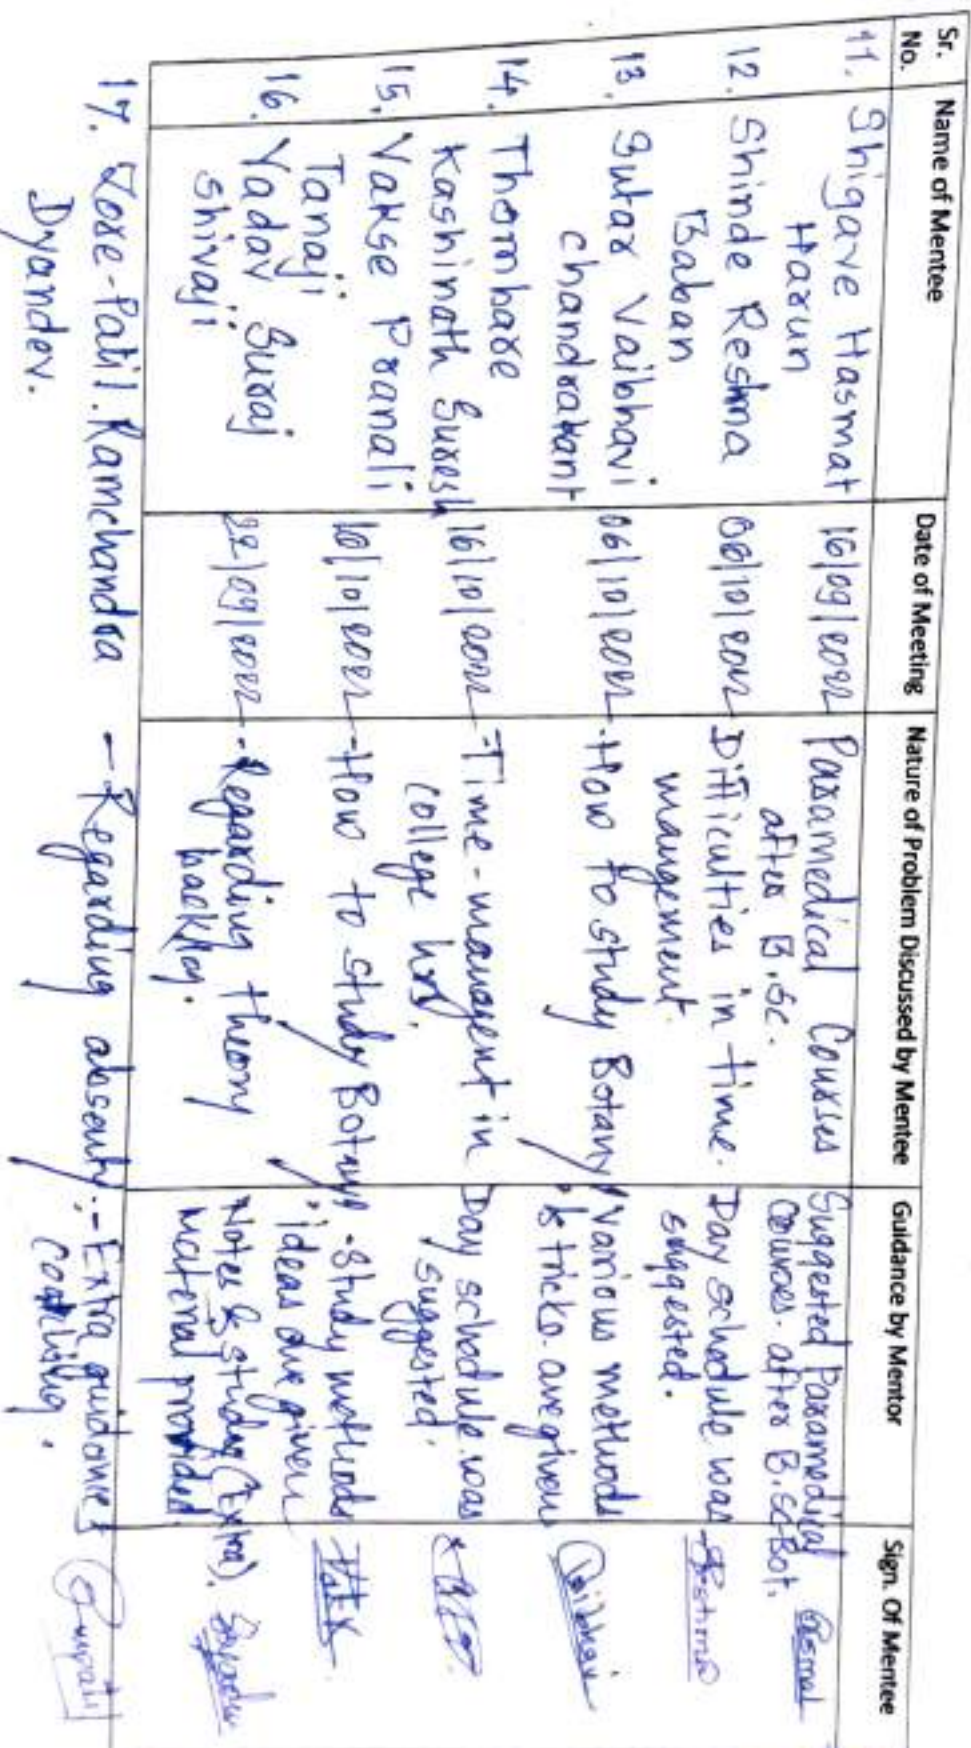 Sr. No. Name of Mentee Date of Meeting Nature of Problem Discussed by Mentee Guidance by Mentor Sign. Of Mentee
11. Shigave Hasmat Harun 16/09/2022 Paramedical Courses after B.sc. Suggested Paramedical Courses after B.sc Bot.
12. Shinde Reshma Baban 06/10/2022 Difficulties in time management. Day schedule was suggested.
13. Sutar Vaibhavi chandrakant 06/10/2022 - How to study Botany Various methods & tricks are given
14. Thombare Kashinath Suresh 16/10/2022 - Time-managent in college hrs. Day schedule was suggested.
15. Vakse Pranali Tanaji 10/10/2022 - How to study Botany - study methods ideas are given
16. Yadav Suraj Shivaji 22/09/2022 - Regarding theory backlog. Notes & study (Extra) material provided.
17. Zore-Patil. Ramchandra Dyandev. - Regarding absenty :- Extra guidance & coaching.